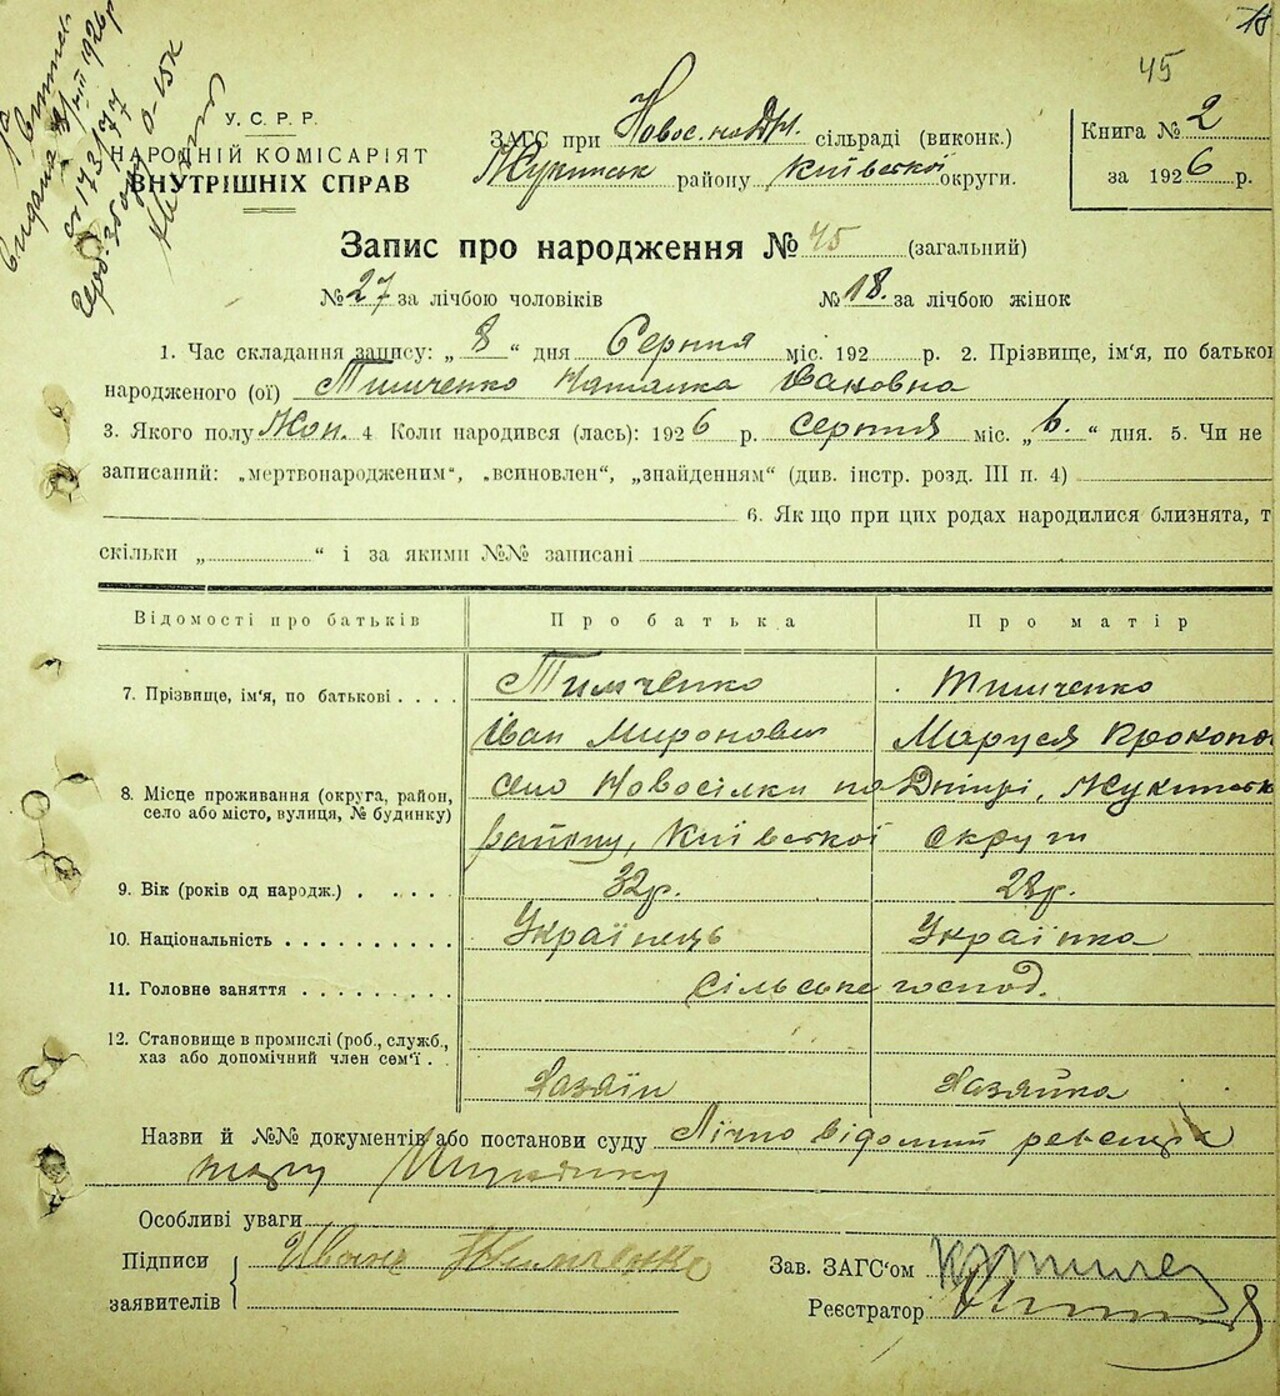 18
45
У. С. Р. Р.
НАРОДНІЙ КОМІСАРІЯТ
ВНУТРІШНІХ СПРАВ
ЗАГС при Новос. на Дпі. сільраді (виконк.)
району Київської округи.
Книга № 2
за 1926 р.
Запис про народження № 45 (загальний)
№ 27 за лічбою чоловіків № 18. за лічбою жінок
1. Час складання запису: „ 8 “ дня Серпня міс. 192 р. 2. Прізвище, ім'я, по батькові
народженого (ої) Тимченко Наталка Івановна
3. Якого полу Жон. 4 Коли народився (лась): 1926 р. серпня міс. „ 6. “ дня. 5. Чи не
записаний: „мертвонародженим“, „всиновлен“, „знайденням“ (див. інстр. розд. III п. 4)
6. Якщо при цих родах народилися близнята, т
скільки „ “ і за якими №№ записані
Відомості про батьків Про батька Про матір
7. Прізвище, ім'я, по батькові . . . . Тимченко Тимченко
Іван Миронович Маруся Прокопо
8. Місце проживання (округа, район, село Новосілки на Дніпрі,
село або місто, вулиця, № будинку)
району, Київської округи
9. Вік (років од народж.) . . . . . 32р. 28р.
10. Національність . . . . . . . . . . Українець Українка
11. Головне заняття . . . . . . . . . сільське господ.
12. Становище в промислі (роб., служб.,
хаз або допомічний член сем'ї . .
Хазяїн Хазяйка
Назви й №№ документів або постанови суду Лічно відомий
Особливі уваги
Підписи Ивана Тимченко Зав. ЗАГС'ом
заявителів Реєстратор